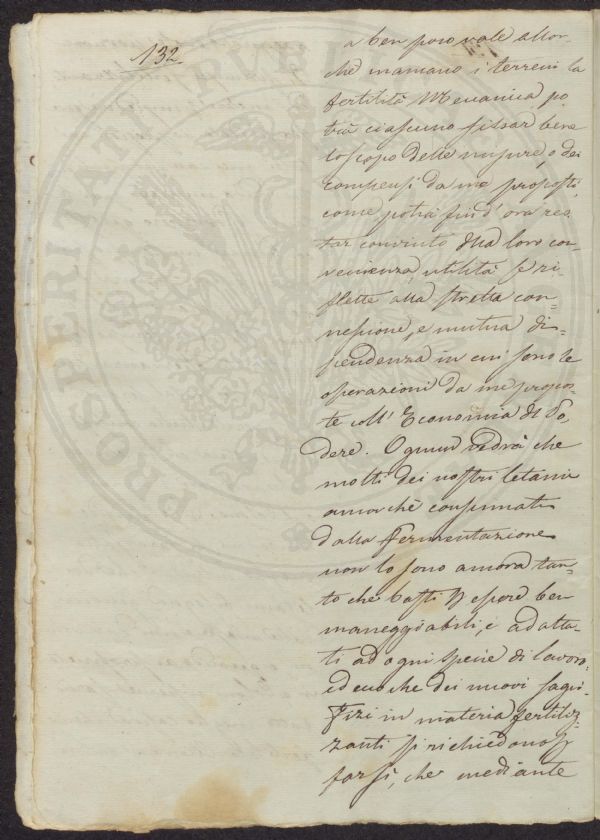 132.
a ben poco vale allor-
chè mancano i terreni la
fertilità Mecanica po
trà ciascuno fissar bene
lo scopo delle misure, o dei
compensi da me proposti,
come potrà fin d'ora res
tar convinto della loro con
venienza, utilità se ri-
flette alla stretta con-
nessione, e mutua di-
pendenza in cui sono le
operazioni da me propos-
te coll' Economia del Po,
dere. Ognun vedrà che
molti dei nostri letami
ancorchè consumati
dalla Fermentazione
non lo sono ancora tan-
to che basti p esere ben
maneggiabili, e adatta-
ti ad ogni specie di lavoro:
ed ecco che dei nuovi sagri-
fizi in materia fertiliz-
zanti si richiedono p
farsi, che mediante
PROSPERITATI PUBLICAE